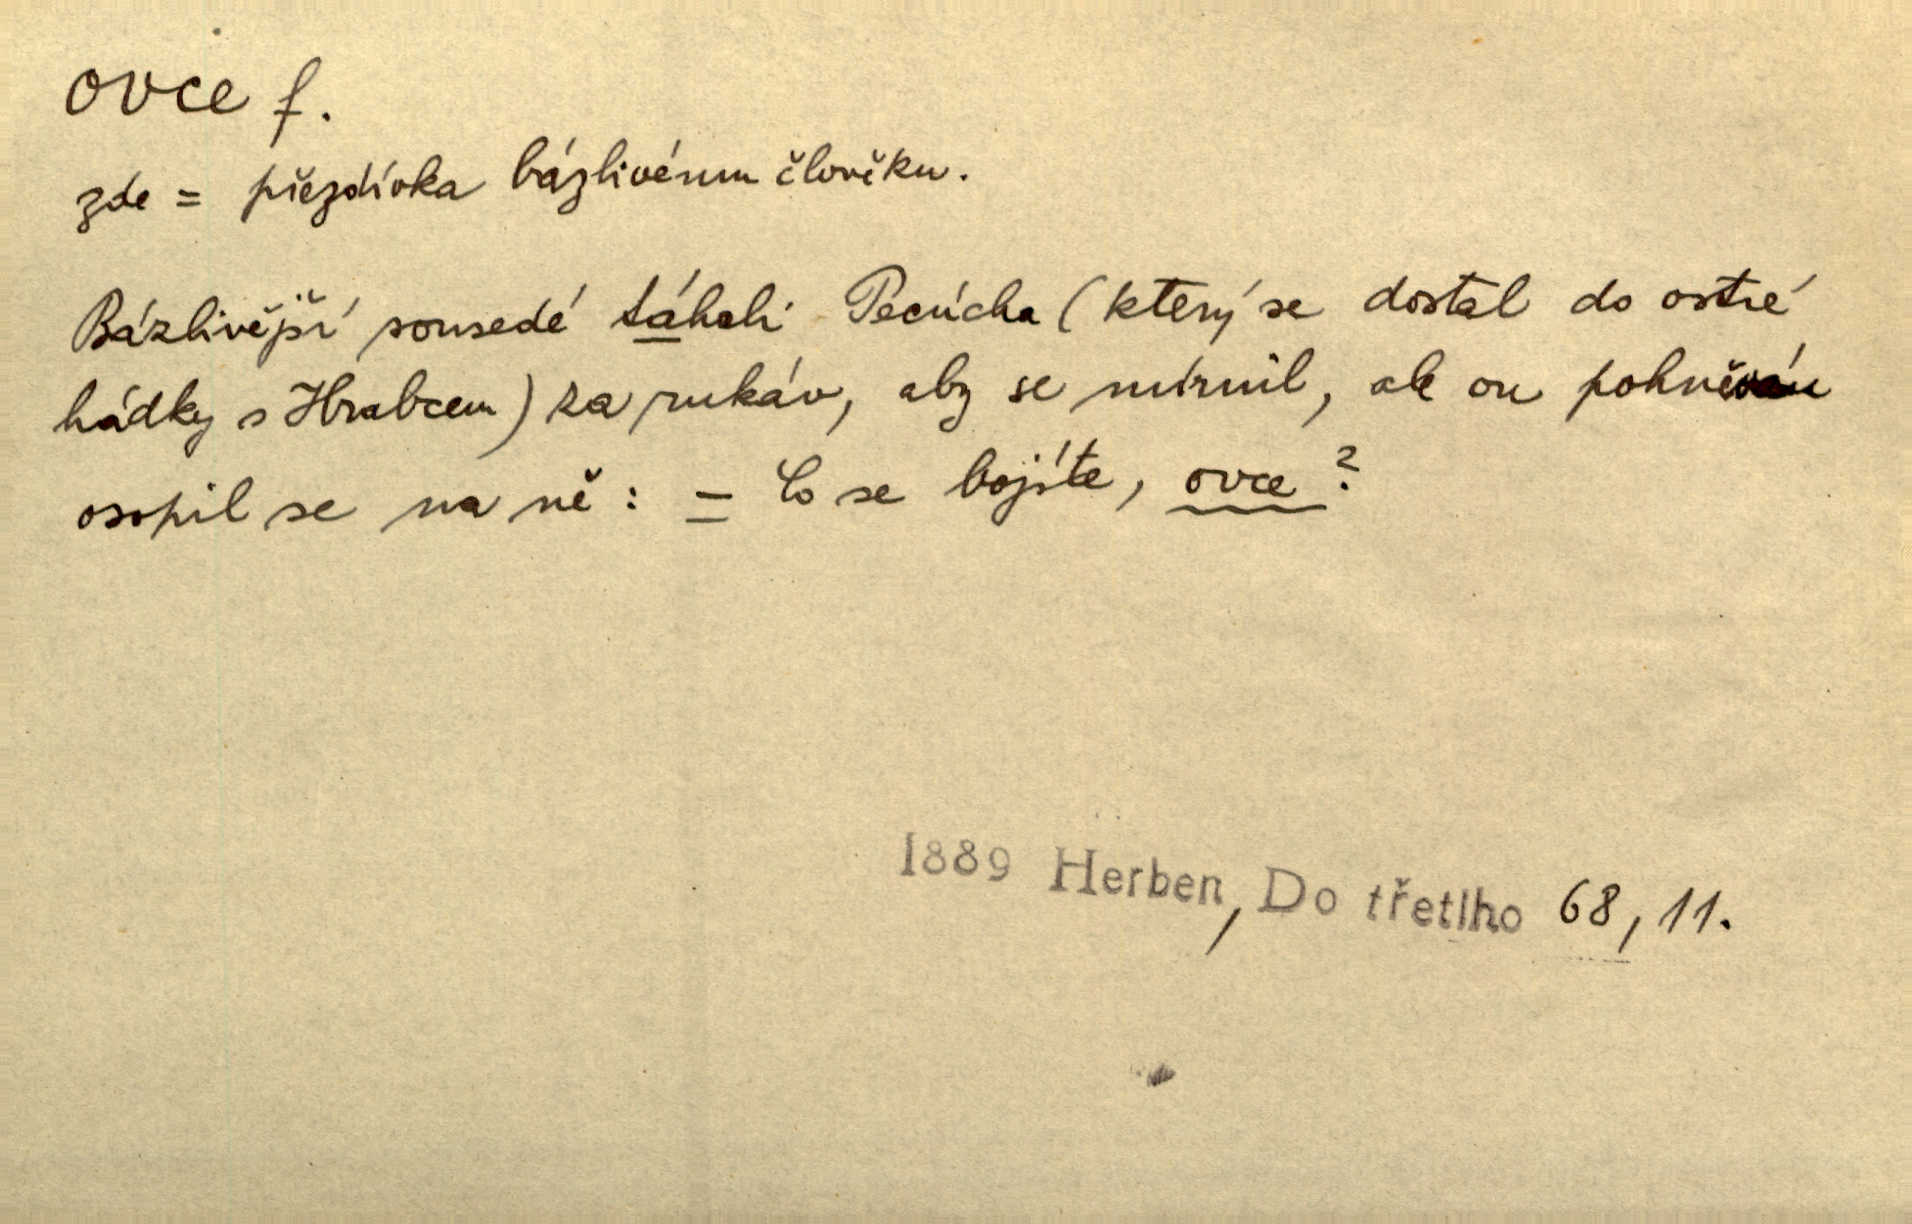 ovce f.
zde = přezdívka bázlivému člověku.
Bázlivější sousedé táhali Pecúcha (který se dostal do ostré
hádky s Hrabcem) za rukáv, aby se mírnil, ale on pohněván
osopil se na ně: – Co se bojíte, ovce?
1889 Herben, Do třetího 68, 11.